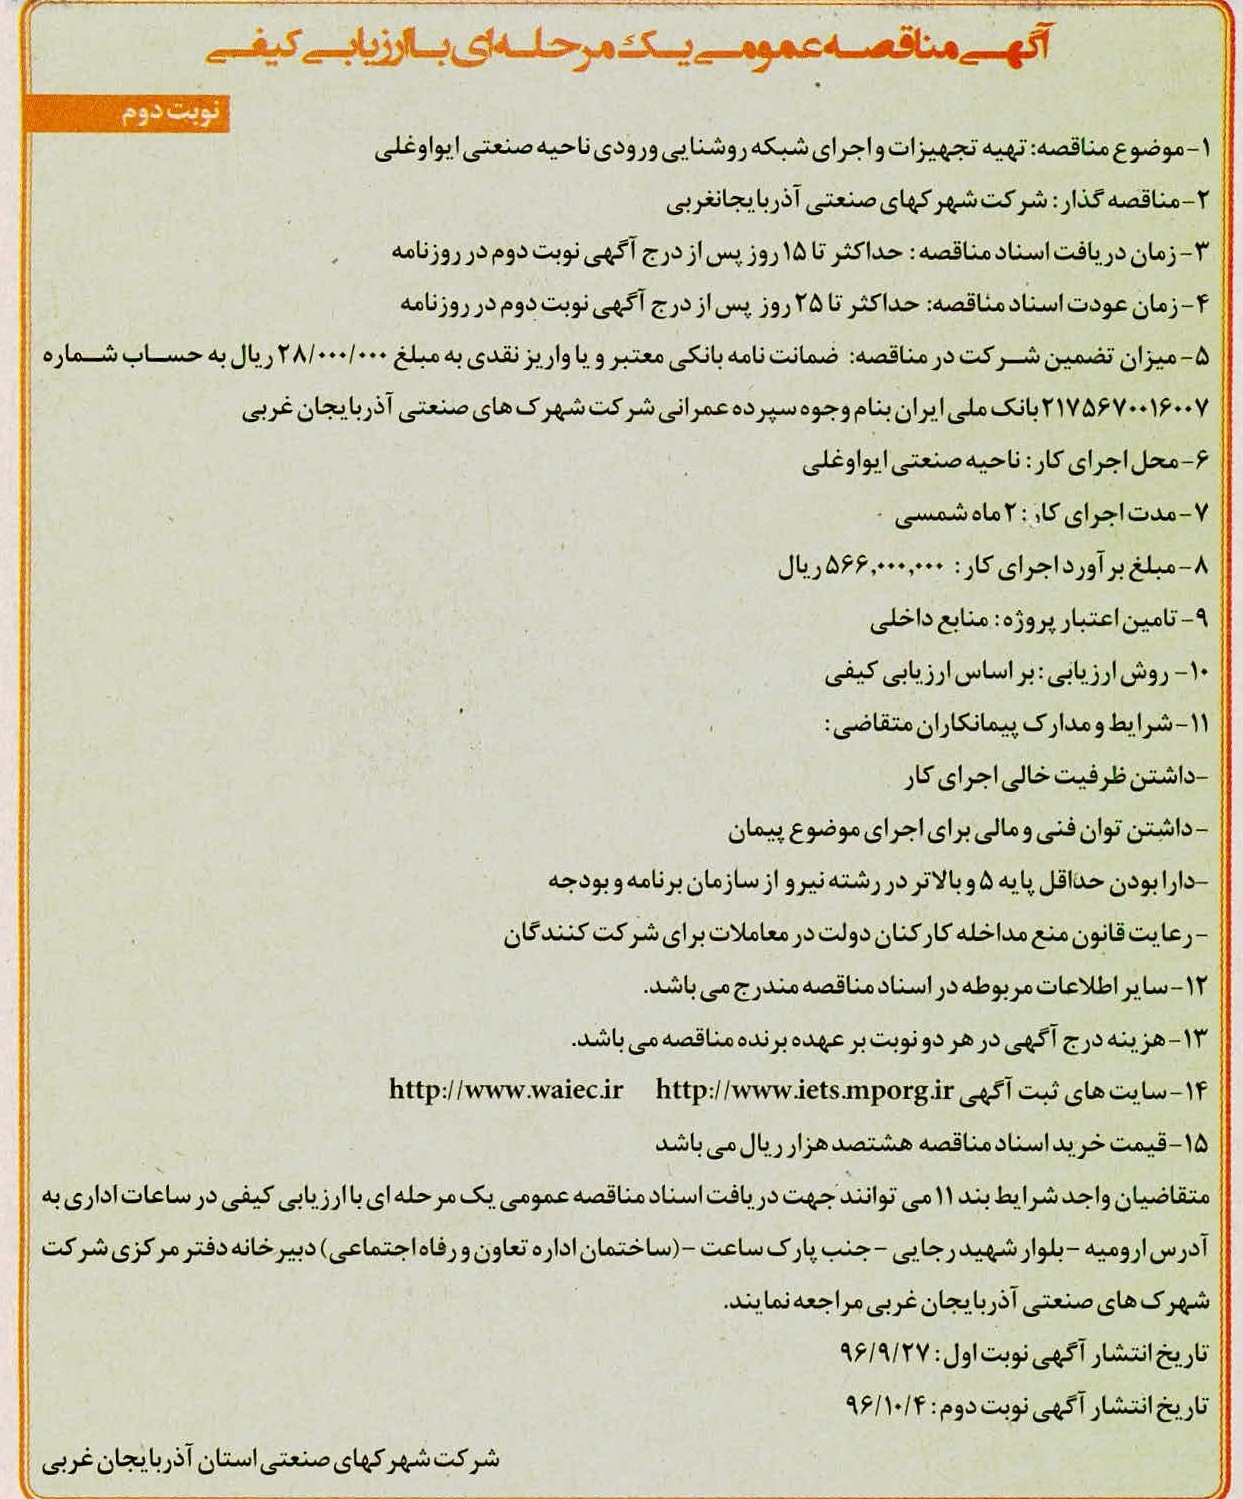 آگهی مناقصه عمومی یک مرحله‌ای با ارزیابی کیفی
نوبت دوم
۱-موضوع مناقصه: تهیه تجهیزات و اجرای شبکه روشنایی ورودی ناحیه صنعتی ایواوغلی
۲-مناقصه گذار: شرکت شهرکهای صنعتی آذربایجانغربی
۳-زمان دریافت اسناد مناقصه: حداکثر تا ۱۵ روز پس از درج آگهی نوبت دوم در روزنامه
۴-زمان عودت اسناد مناقصه: حداکثر تا ۲۵ روز پس از درج آگهی نوبت دوم در روزنامه
۵- میزان تضمین شرکت در مناقصه: ضمانت نامه بانکی معتبر و یا واریز نقدی به مبلغ ۲۸/۰۰۰/۰۰۰ ریال به حساب شماره
۲۱۷۵۶۷۰۰۱۶۰۰۷ بانک ملی ایران بنام وجوه سپرده عمرانی شرکت شهرک های صنعتی آذربایجان غربی
۶-محل اجرای کار: ناحیه صنعتی ایواوغلی
۷-مدت اجرای کار: ۲ ماه شمسی
۸-مبلغ برآورد اجرای کار: ۵۶۶,۰۰۰,۰۰۰ ریال
۹- تامین اعتبار پروژه: منابع داخلی
۱۰- روش ارزیابی: بر اساس ارزیابی کیفی
۱۱-شرایط و مدارک پیمانکاران متقاضی:
-داشتن ظرفیت خالی اجرای کار
-داشتن توان فنی و مالی برای اجرای موضوع پیمان
-دارا بودن حداقل پایه ۵ و بالاتر در رشته نیرو از سازمان برنامه و بودجه
-رعایت قانون منع مداخله کارکنان دولت در معاملات برای شرکت کنندگان
۱۲-سایر اطلاعات مربوطه در اسناد مناقصه مندرج می باشد.
۱۳-هزینه درج آگهی در هر دو نوبت بر عهده برنده مناقصه می باشد.
۱۴-سایت های ثبت آگهی http://www.iets.mporg.ir http://www.waiec.ir
۱۵-قیمت خرید اسناد مناقصه هشتصد هزار ریال می باشد
متقاضیان واجد شرایط بند ۱۱ می توانند جهت دریافت اسناد مناقصه عمومی یک مرحله ای با ارزیابی کیفی در ساعات اداری به
آدرس ارومیه -بلوار شهید رجایی -جنب پارک ساعت -(ساختمان اداره تعاون و رفاه اجتماعی) دبیرخانه دفتر مرکزی شرکت
شهرک های صنعتی آذربایجان غربی مراجعه نمایند.
تاریخ انتشار آگهی نوبت اول: ۹۶/۹/۲۷
تاریخ انتشار آگهی نوبت دوم: ۹۶/۱۰/۴
شرکت شهرکهای صنعتی استان آذربایجان غربی